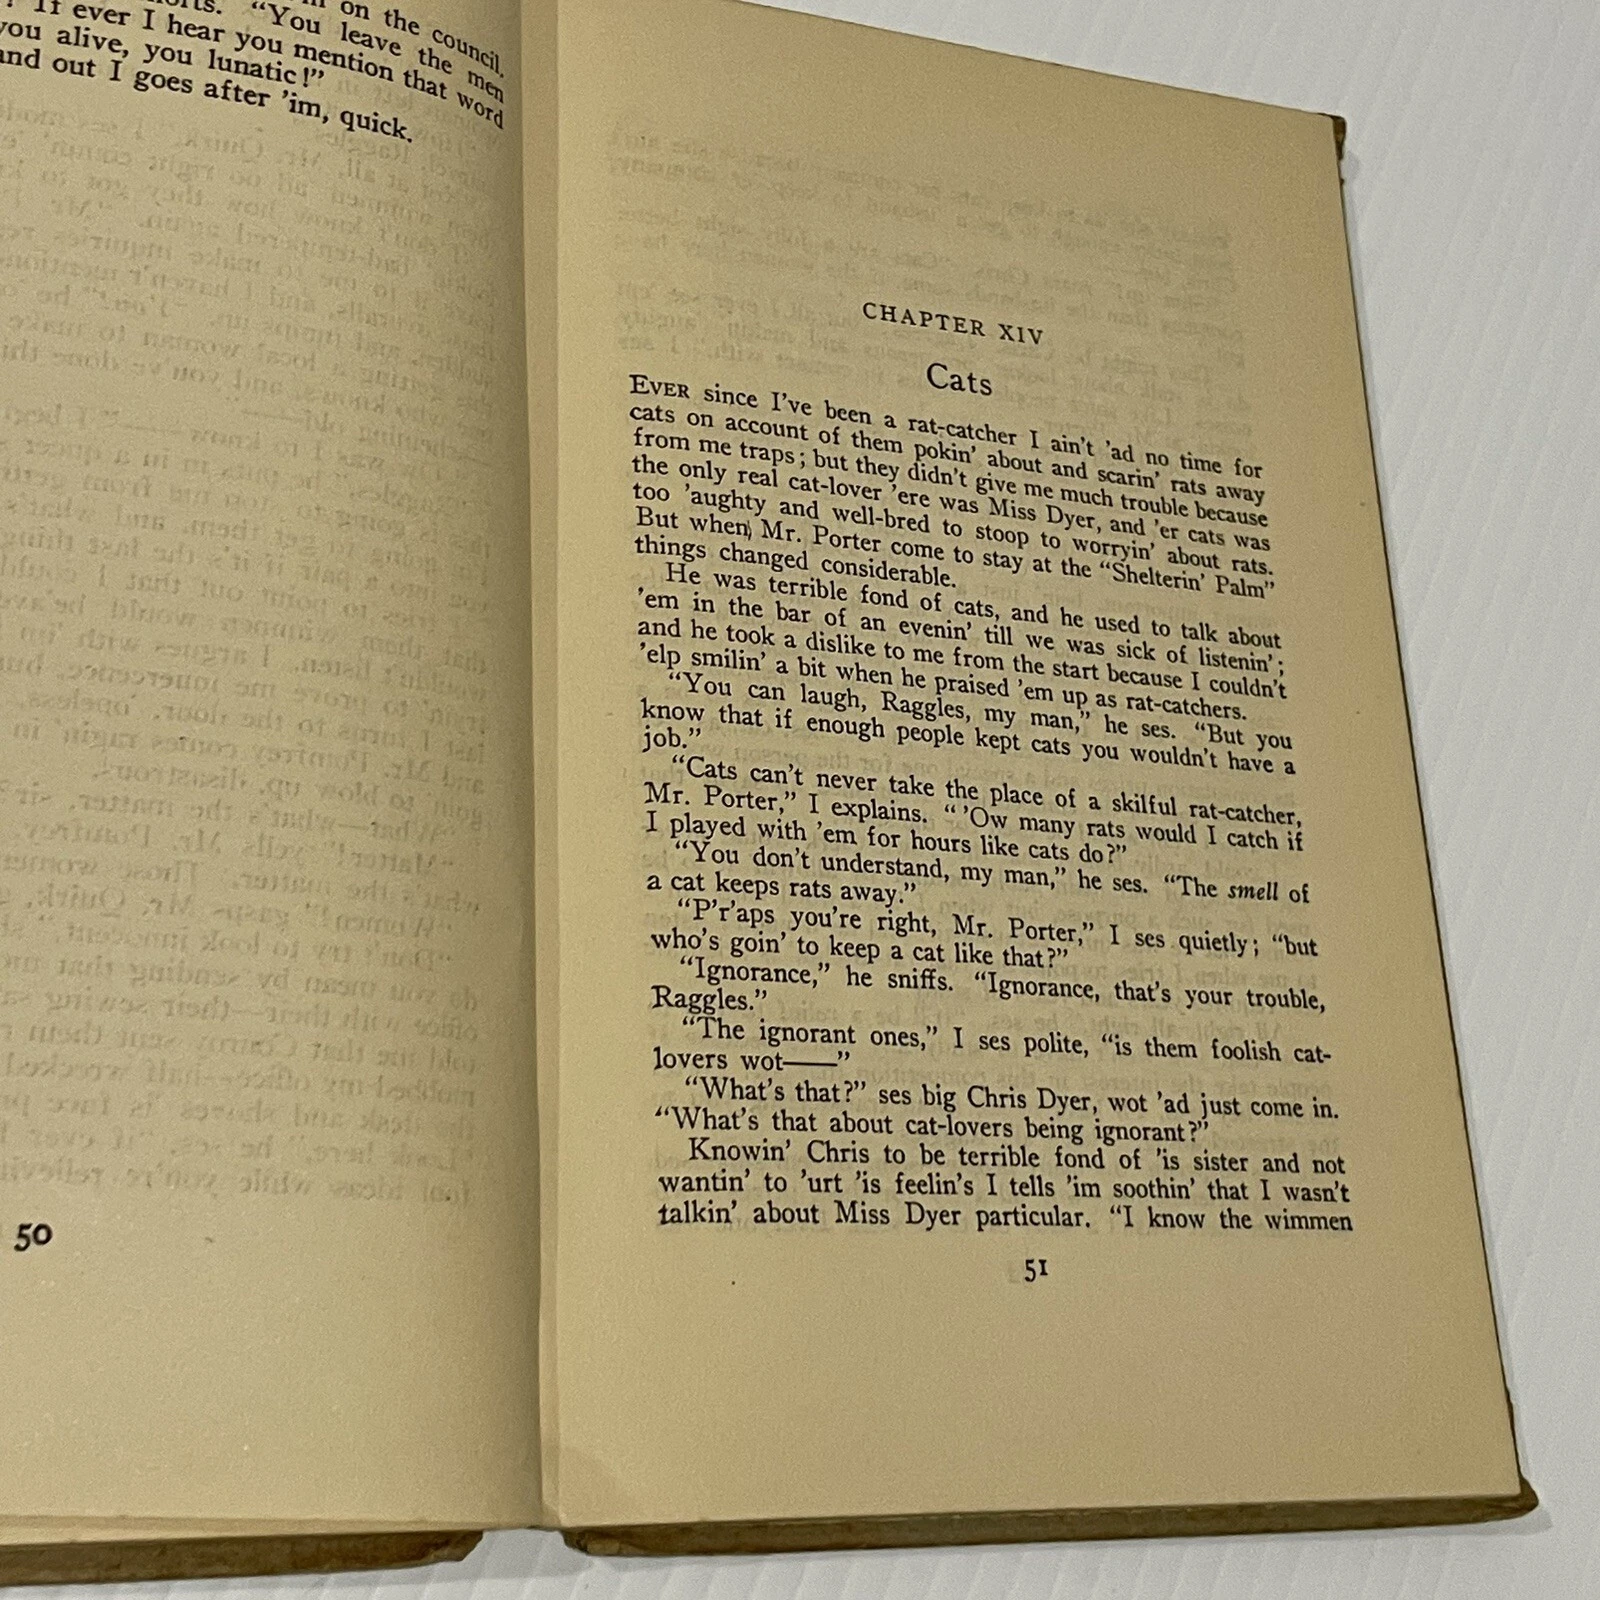 on the council.
"You leave the men
If ever I hear you mention that word
you alive, you lunatic!"
and out I goes after 'im, quick.
50
CHAPTER XIV
Cats
EVER since I've been a rat-catcher I ain't 'ad no time for
cats on account of them pokin' about and scarin' rats away
from me traps; but they didn't give me much trouble because
the only real cat-lover 'ere was Miss Dyer, and 'er cats was
too 'aughty and well-bred to stoop to worryin' about rats.
But when Mr. Porter come to stay at the "Shelterin' Palm"
things changed considerable.
He was terrible fond of cats, and he used to talk about
'em in the bar of an evenin' till we was sick of listenin';
and he took a dislike to me from the start because I couldn't
'elp smilin' a bit when he praised 'em up as rat-catchers.
"You can laugh, Raggles, my man," he ses. "But you
know that if enough people kept cats you wouldn't have a
job."
"Cats can't never take the place of a skilful rat-catcher,
Mr. Porter," I explains. "'Ow many rats would I catch if
I played with 'em for hours like cats do?"
"You don't understand, my man," he ses. "The smell of
a cat keeps rats away."
"P'r'aps you're right, Mr. Porter," I ses quietly; "but
who's goin' to keep a cat like that?"
"Ignorance," he sniffs. "Ignorance, that's your trouble,
Raggles."
"The ignorant ones," I ses polite, "is them foolish cat-
lovers wot——"
"What's that?" ses big Chris Dyer, wot 'ad just come in.
"What's that about cat-lovers being ignorant?"
Knowin' Chris to be terrible fond of 'is sister and not
wantin' to 'urt 'is feelin's I tells 'im soothin' that I wasn't
talkin' about Miss Dyer particular. "I know the wimmen
51